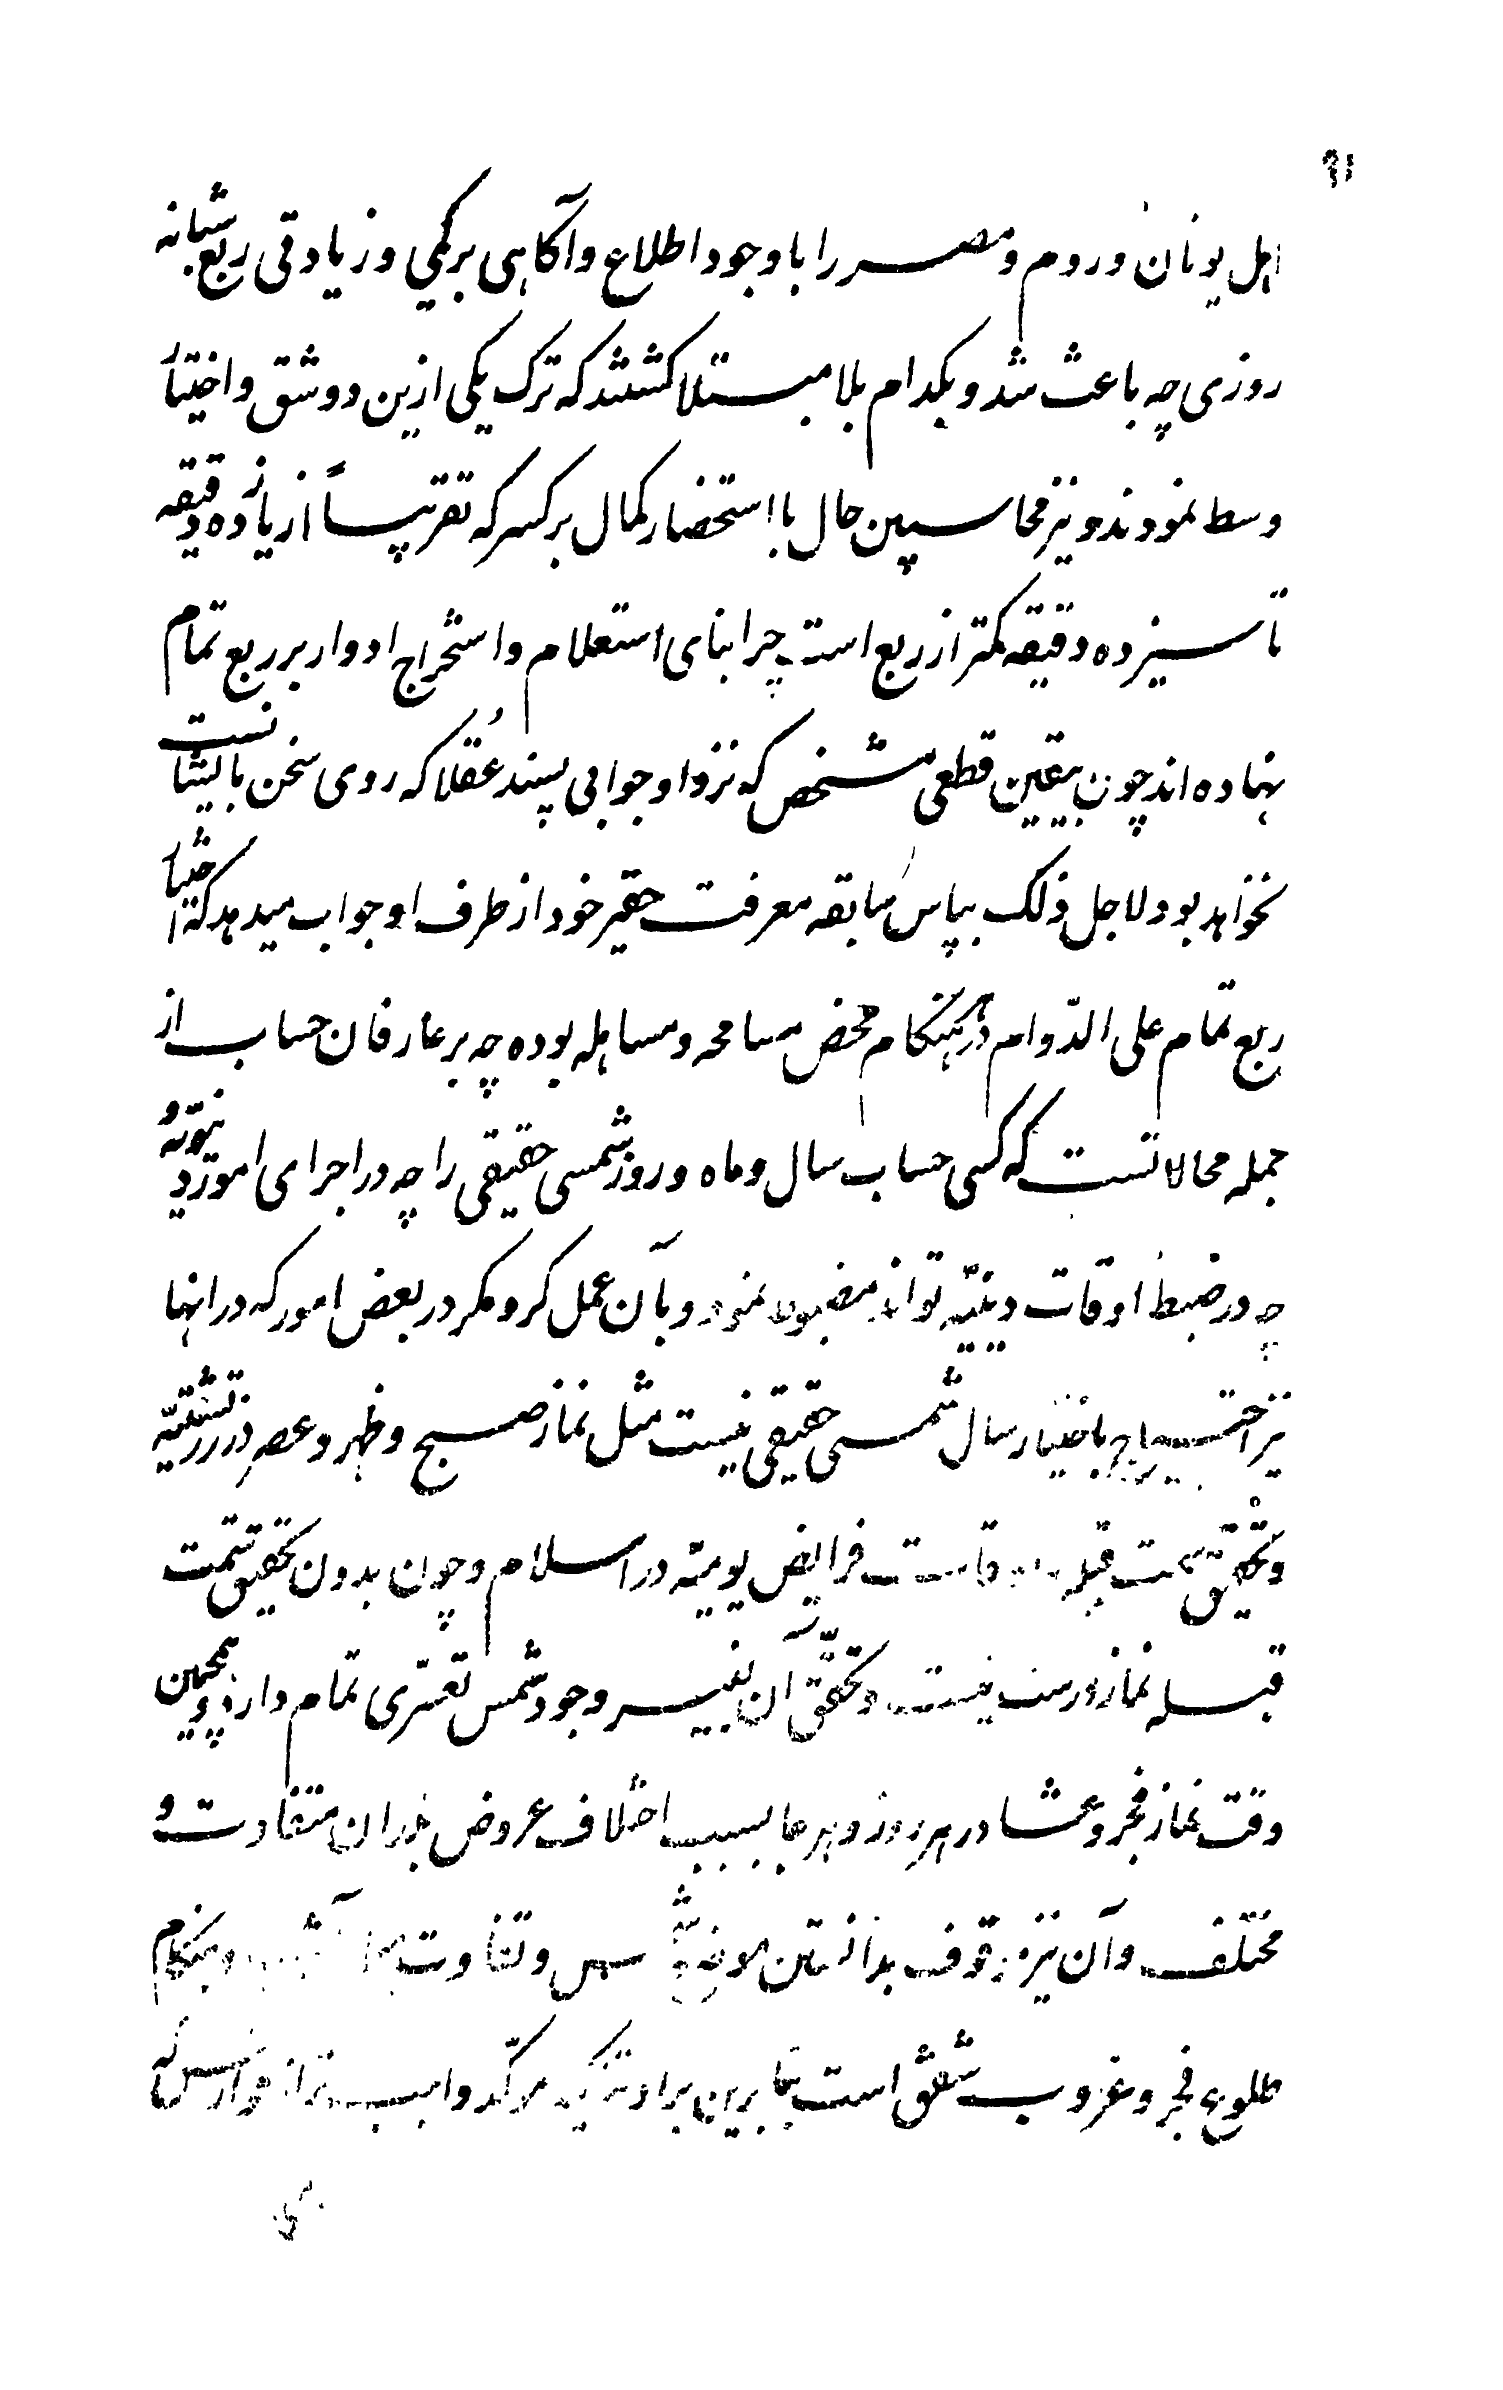 ۹۱
اهل یونان و روم و مصر را با وجود اطلاع و آکاهی بر کمی و زیادتی ربع شبانه
روزی چه باعث شد و بکدام بلا مبتلا کشتند که ترک یکی ازین دو شق و اختیار
وسط نمودند و نیز محاسبین حال با استحضار کمال بر کسر که تقریباً از یازده دقیقه
تا سیزده دقیقه کمتر از ربع است چرا بنای استعلام و استخراج ادوار بر ربع تمام
نهاده اند چون بیقین قطعی مشخص که نزد او جوابی پسند عُقلا که روی سخن با ایشانست
نخواهد بود و لاجل ذلک بپاس سابقه معرفت حقیر خود از طرف او جواب میدهد که اختیار
ربع تمام علی الدّوام در هر هنکام محض مسامحه و مساهله بوده چه بر عارفان حساب از
جمله محالاتست که کسی حساب سال و ماه و روز شمسی حقیقی را چه در اجرای امور دنیویّه و
چه در ضبط اوقات دینیّه تواند مضبوط نمود و بآن عمل کرد مکر در بعض امور که در انها
نیز احتیاج باختیار سال شمسی حقیقی نیست مثل نماز صبح و ظهر و عصر در زرتشتیّه
و تحقیق سمت قبله و اوقات فرایض یومیّه در اسلام و چون بدون تحقیق سمت
قبله نماز درست نیست و تحقّق آن بغیر وجود شمس تعسّری تمام دارد و همچنین
وقت نماز فجر و عشا در هر روز و هر جا بسبب اختلاف عروض بلدان متفاوت و
مختلف و آن نیز موقوف بدانستن شمس و تفاوت و هنکام
طلوع فجر و غروب شفق است بنا برین مؤکد و